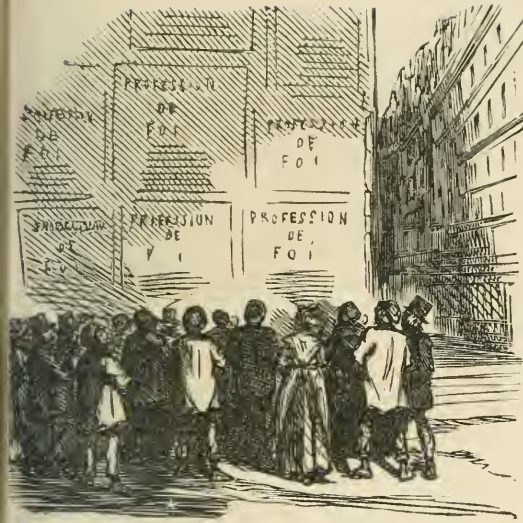 PROFESSION
DE
FOI
DE
FOI
PROFESSION
DE
FOI
DE
PROFESSION
DE
PROFESSION
DE
FOI